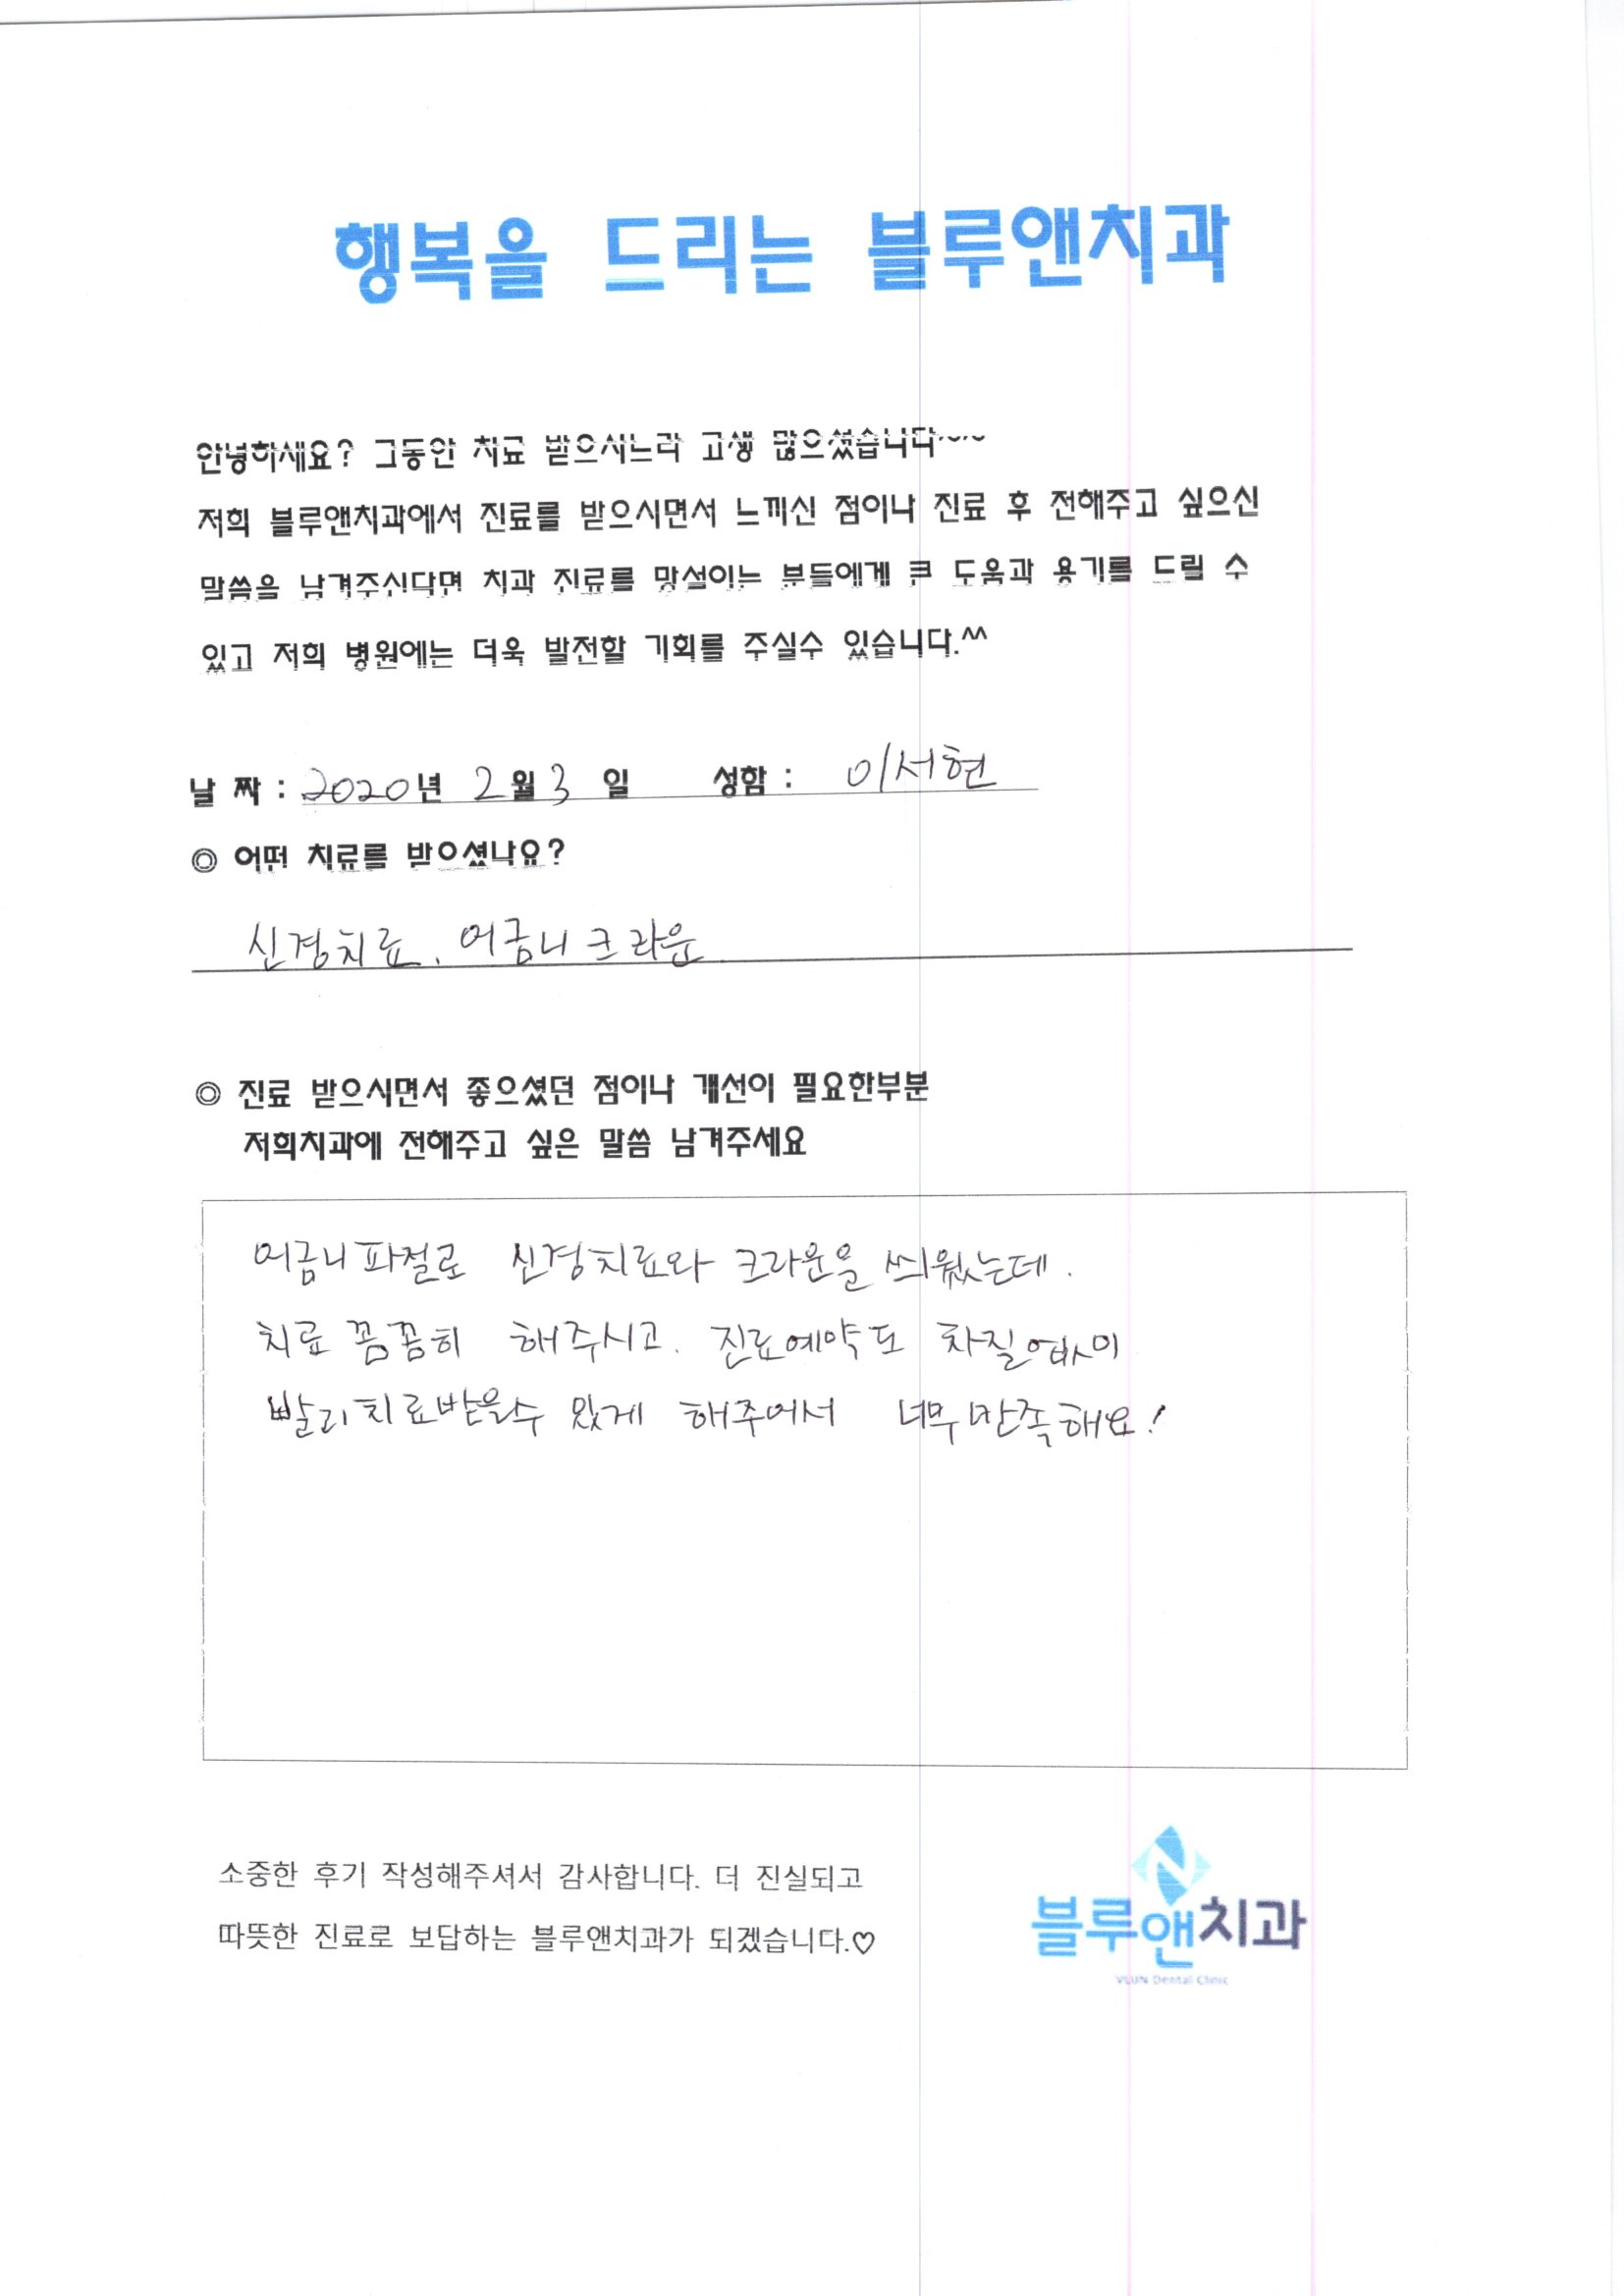 행복을 드리는 블루앤치과
안녕하세요? 그동안 치료 받으시느라 고생 많으셨습니다^^
저희 블루앤치과에서 진료를 받으시면서 느끼신 점이나 진료 후 전해주고 싶으신
말씀을 남겨주신다면 치과 진료를 망설이는 분들에게 큰 도움과 용기를 드릴 수
있고 저희 병원에는 더욱 발전할 기회를 주실수 있습니다.^^
날 짜 : 2020년 2월 3 일 성함 : 이서현
◎ 어떤 치료를 받으셨나요?
신경치료, 어금니 크라운
◎ 진료 받으시면서 좋으셨던 점이나 개선이 필요한부분
저희치과에 전해주고 싶은 말씀 남겨주세요
어금니 파절로 신경치료와 크라운을 씌웠는데.
치료 꼼꼼히 해주시고. 진료예약도 차질없이
빨리치료받을수 있게 해주어서 너무만족해요!
소중한 후기 작성해주셔서 감사합니다. 더 진실되고
따뜻한 진료로 보답하는 블루앤치과가 되겠습니다.♡
블루앤치과
VLUN Dental Clinic